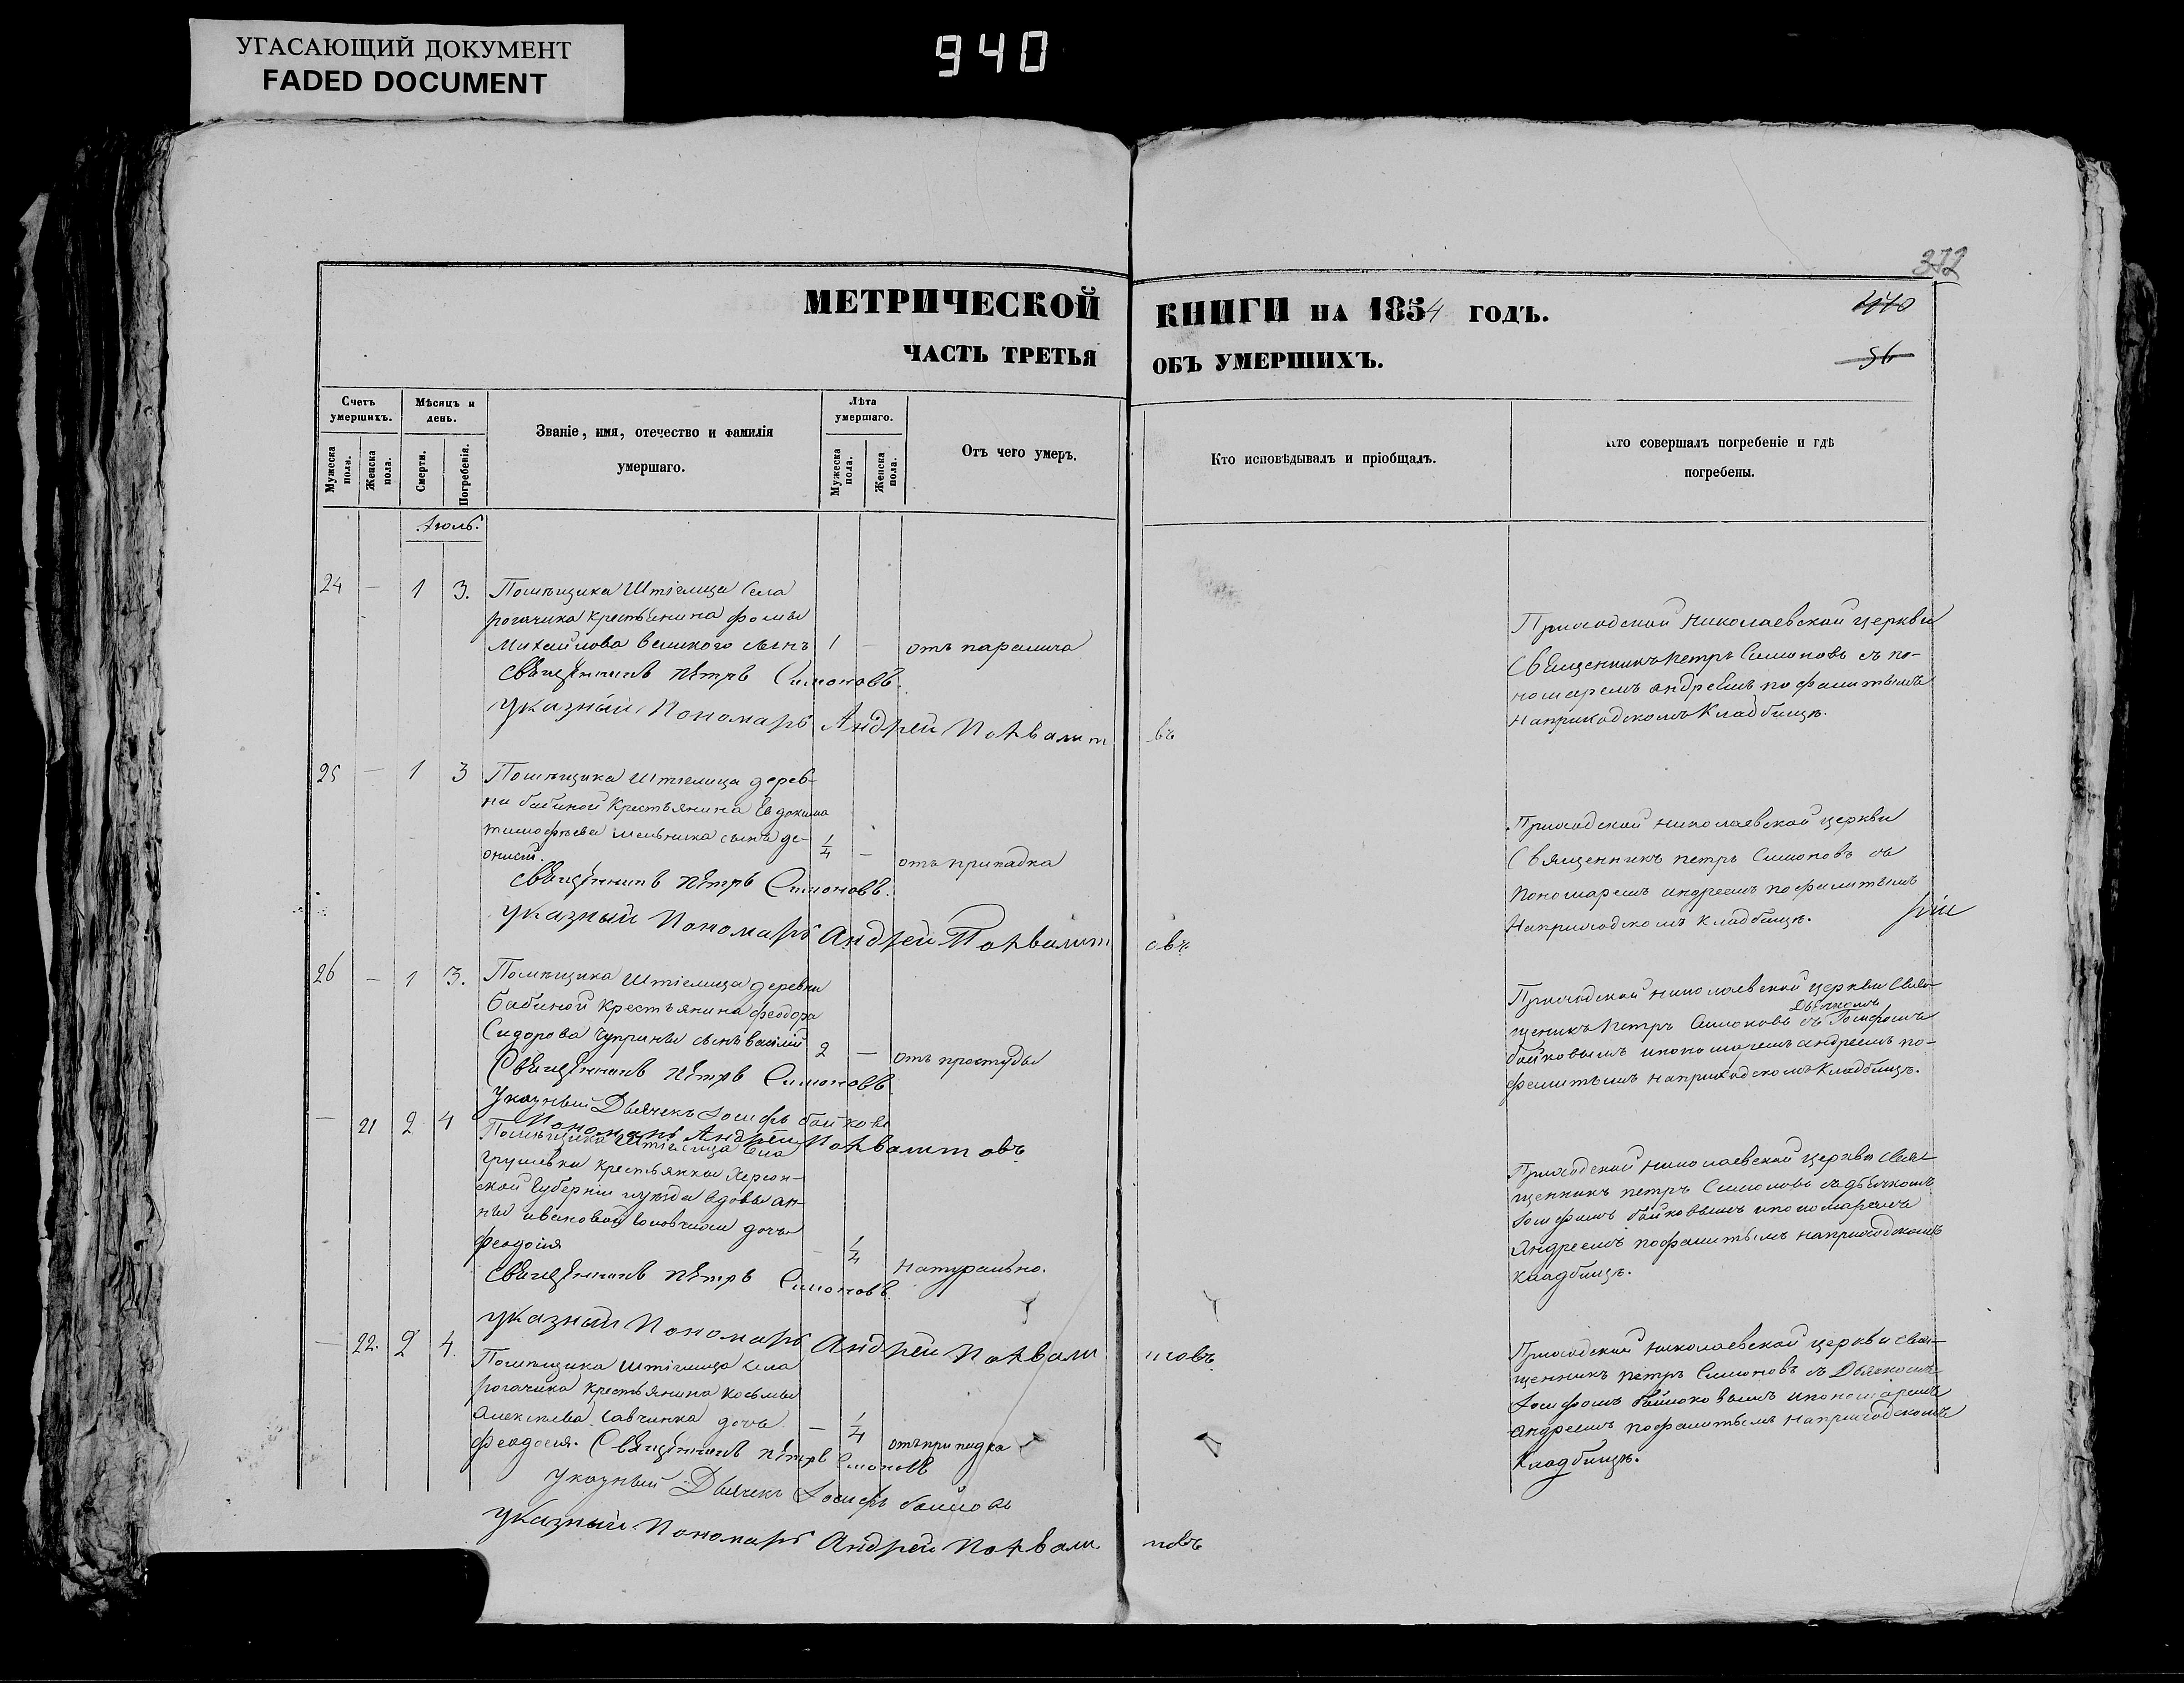 УГАСАЮЩИЙ ДОКУМЕНТ
FADED DOCUMENT
940
372
МЕТРИЧЕСКОЙ КНИГИ НА 1854 ГОДЪ.
ЧАСТЬ ТРЕТЬЯ ОБЪ УМЕРШИХЪ.
56
Счетъ умершихъ.
Мужеска полa.
Женска пола.
Мѣсяцъ и день.
Смерти.
Погребенія.
Званіе, имя, отечество и фамилія умершаго.
Лѣта умершаго.
Мужеска пола.
Женска пола.
Отъ чего умеръ.
Кто исповѣдывалъ и пріобщалъ.
Кто совершалъ погребеніе и гдѣ погребены.
Июль.
24 — 1 3. Помѣщика Штіглица села
рогачика крестьянина фомы
Михайлова великого сынъ 1 — отъ паралича
Священникъ Петръ Симоновъ.
Указный Пономарь Андрей Похвалитовъ
Приходской Николаевской церкви
Священникъ Петръ Симоновъ съ по-
номаремъ андреемъ пофалитымъ
наприходскомъ Кладбищѣ.
25 — 1 3 Помѣщика Штиглица дерев-
ни бабиной Крестьянина Евдокима
тимофѣева мельника сынъ де-
онисій. 1/4 — отъ припадка
Священникъ Петръ Симоновъ.
Указный Пономарь Андрей Похвалитовъ.
Приходской николаевской церкви
Священникъ петръ Симоновъ съ
пономаремъ андреемъ пофалитымъ
Наприходскомъ кладбищѣ.
26 — 1 3. Помѣщика Штіглица деревни
бабиной крестьянина феодора
Сидорова Чуприны сынъ василій 2 — отъ простуды
Священникъ Петръ Симоновъ
Указный Дьячекъ Іосифъ байковъ
Пономарь Андрей Похвалитовъ.
Приходской николаевской церкви Свя-
щеникъ Петръ Симоновъ съ Дьячкомъ Іосифомъ
байковымъ ипономаремъ андреемъ по-
фалитымъ наприходскомъ Кладбищѣ.
— 21 2 4 Помѣщика Штіглица села
грушевки крестьянки Херсон-
ской Губерніи уѣзда вдовы ан-
ны ивановой дочь
феодосія — 1/4 натурально.
Священникъ Петръ Симоновъ.
Указный Пономарь Андрей Похвалитовъ.
Приходской николаевской церкви Свя-
щенникъ петръ Симоновъ съдьячкомъ
Іосифомъ байковымъ ипономаремъ
Андреемъ пофалитымъ наприходскомъ
кладбищѣ.
— 22. 2 4. Помѣщика Штіглица села
рогачика крестьянина косьмы
Алексѣева Савчинка дочь — 1/4 отъ припадка
феодосія. Священникъ Петръ Симоновъ
Указный Дьячекъ Іосифъ
Указный Пономарь Андрей Похвалитовъ
Приходской николаевской церкви Свя-
щенникъ петръ Симоновъ съ Дьячкомъ
Іосифомъ байковымъ ипономаремъ
андреемъ пофалитымъ наприходскомъ
Кладбищѣ.